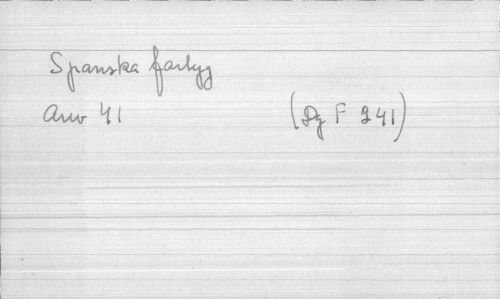 Spanska fartyg
Anv 41 (Dg F 241)